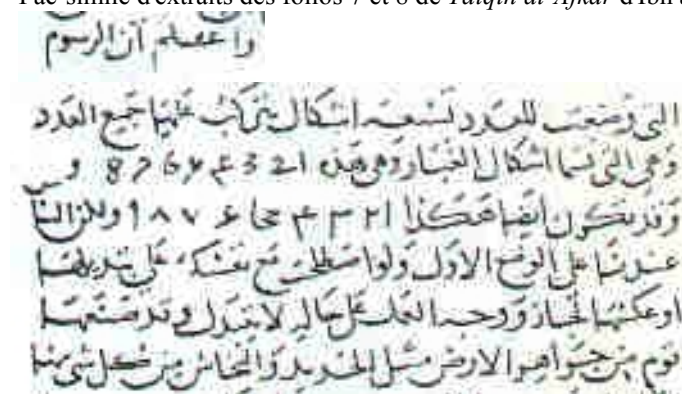 Fac-similé d'extraits des folios 7 et 8 de Talqīḥ al-Afkār d'Ibn
واعلم أن الرسوم
التي وضعت للعدد تسعة اشكال يتركب عليها جميع العدد
وهي التي تسما اشكال الغبار وهي هذه
وقد تكون أيضا هكذا ولكن الناس
عندنا على الوضع الاول ولو اصطلحت مع نفسك على تبديلها
او عكسها لجاز ووجه العمل على حاله لا يتبدل وقد صنعها
قوم من جواهر الارض مثل الحديد والنحاس من كل شيء منها